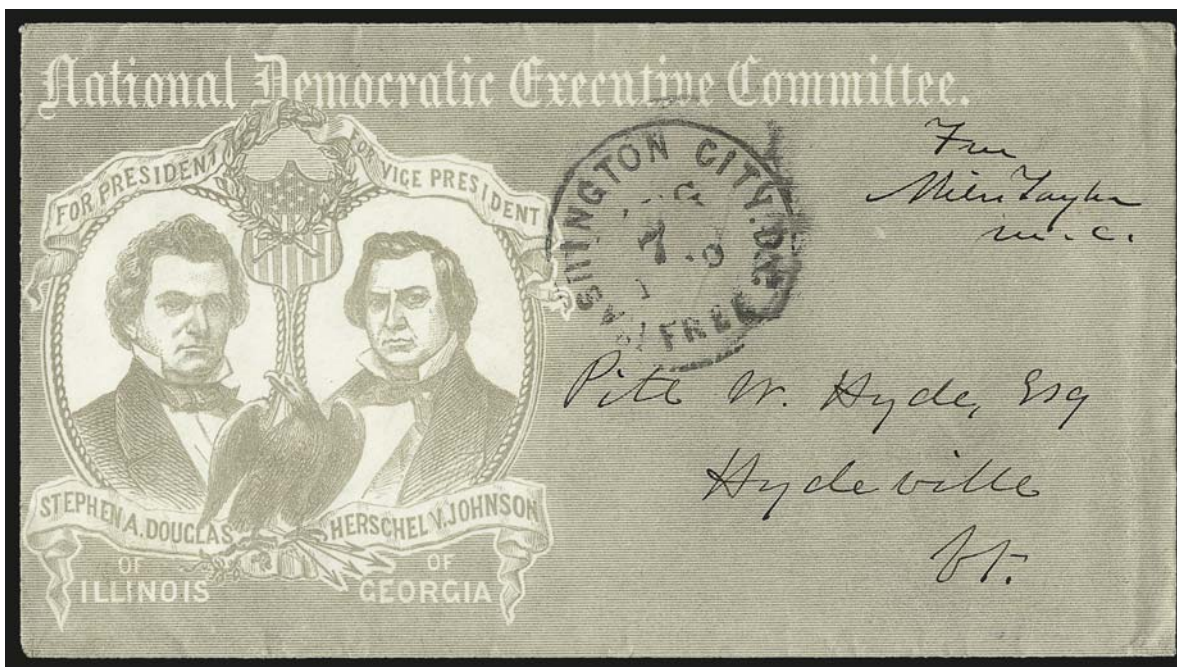 National Democratic Executive Committee.
FOR PRESIDENT
FOR VICE PRESIDENT
STEPHEN A. DOUGLAS
OF
ILLINOIS
HERSCHEL V. JOHNSON
OF
GEORGIA
WASHINGTON CITY. D.C.
FREE
Free
Miles Taylor
M.C.
W. Hyde, Esq
Hydeville
Vt.